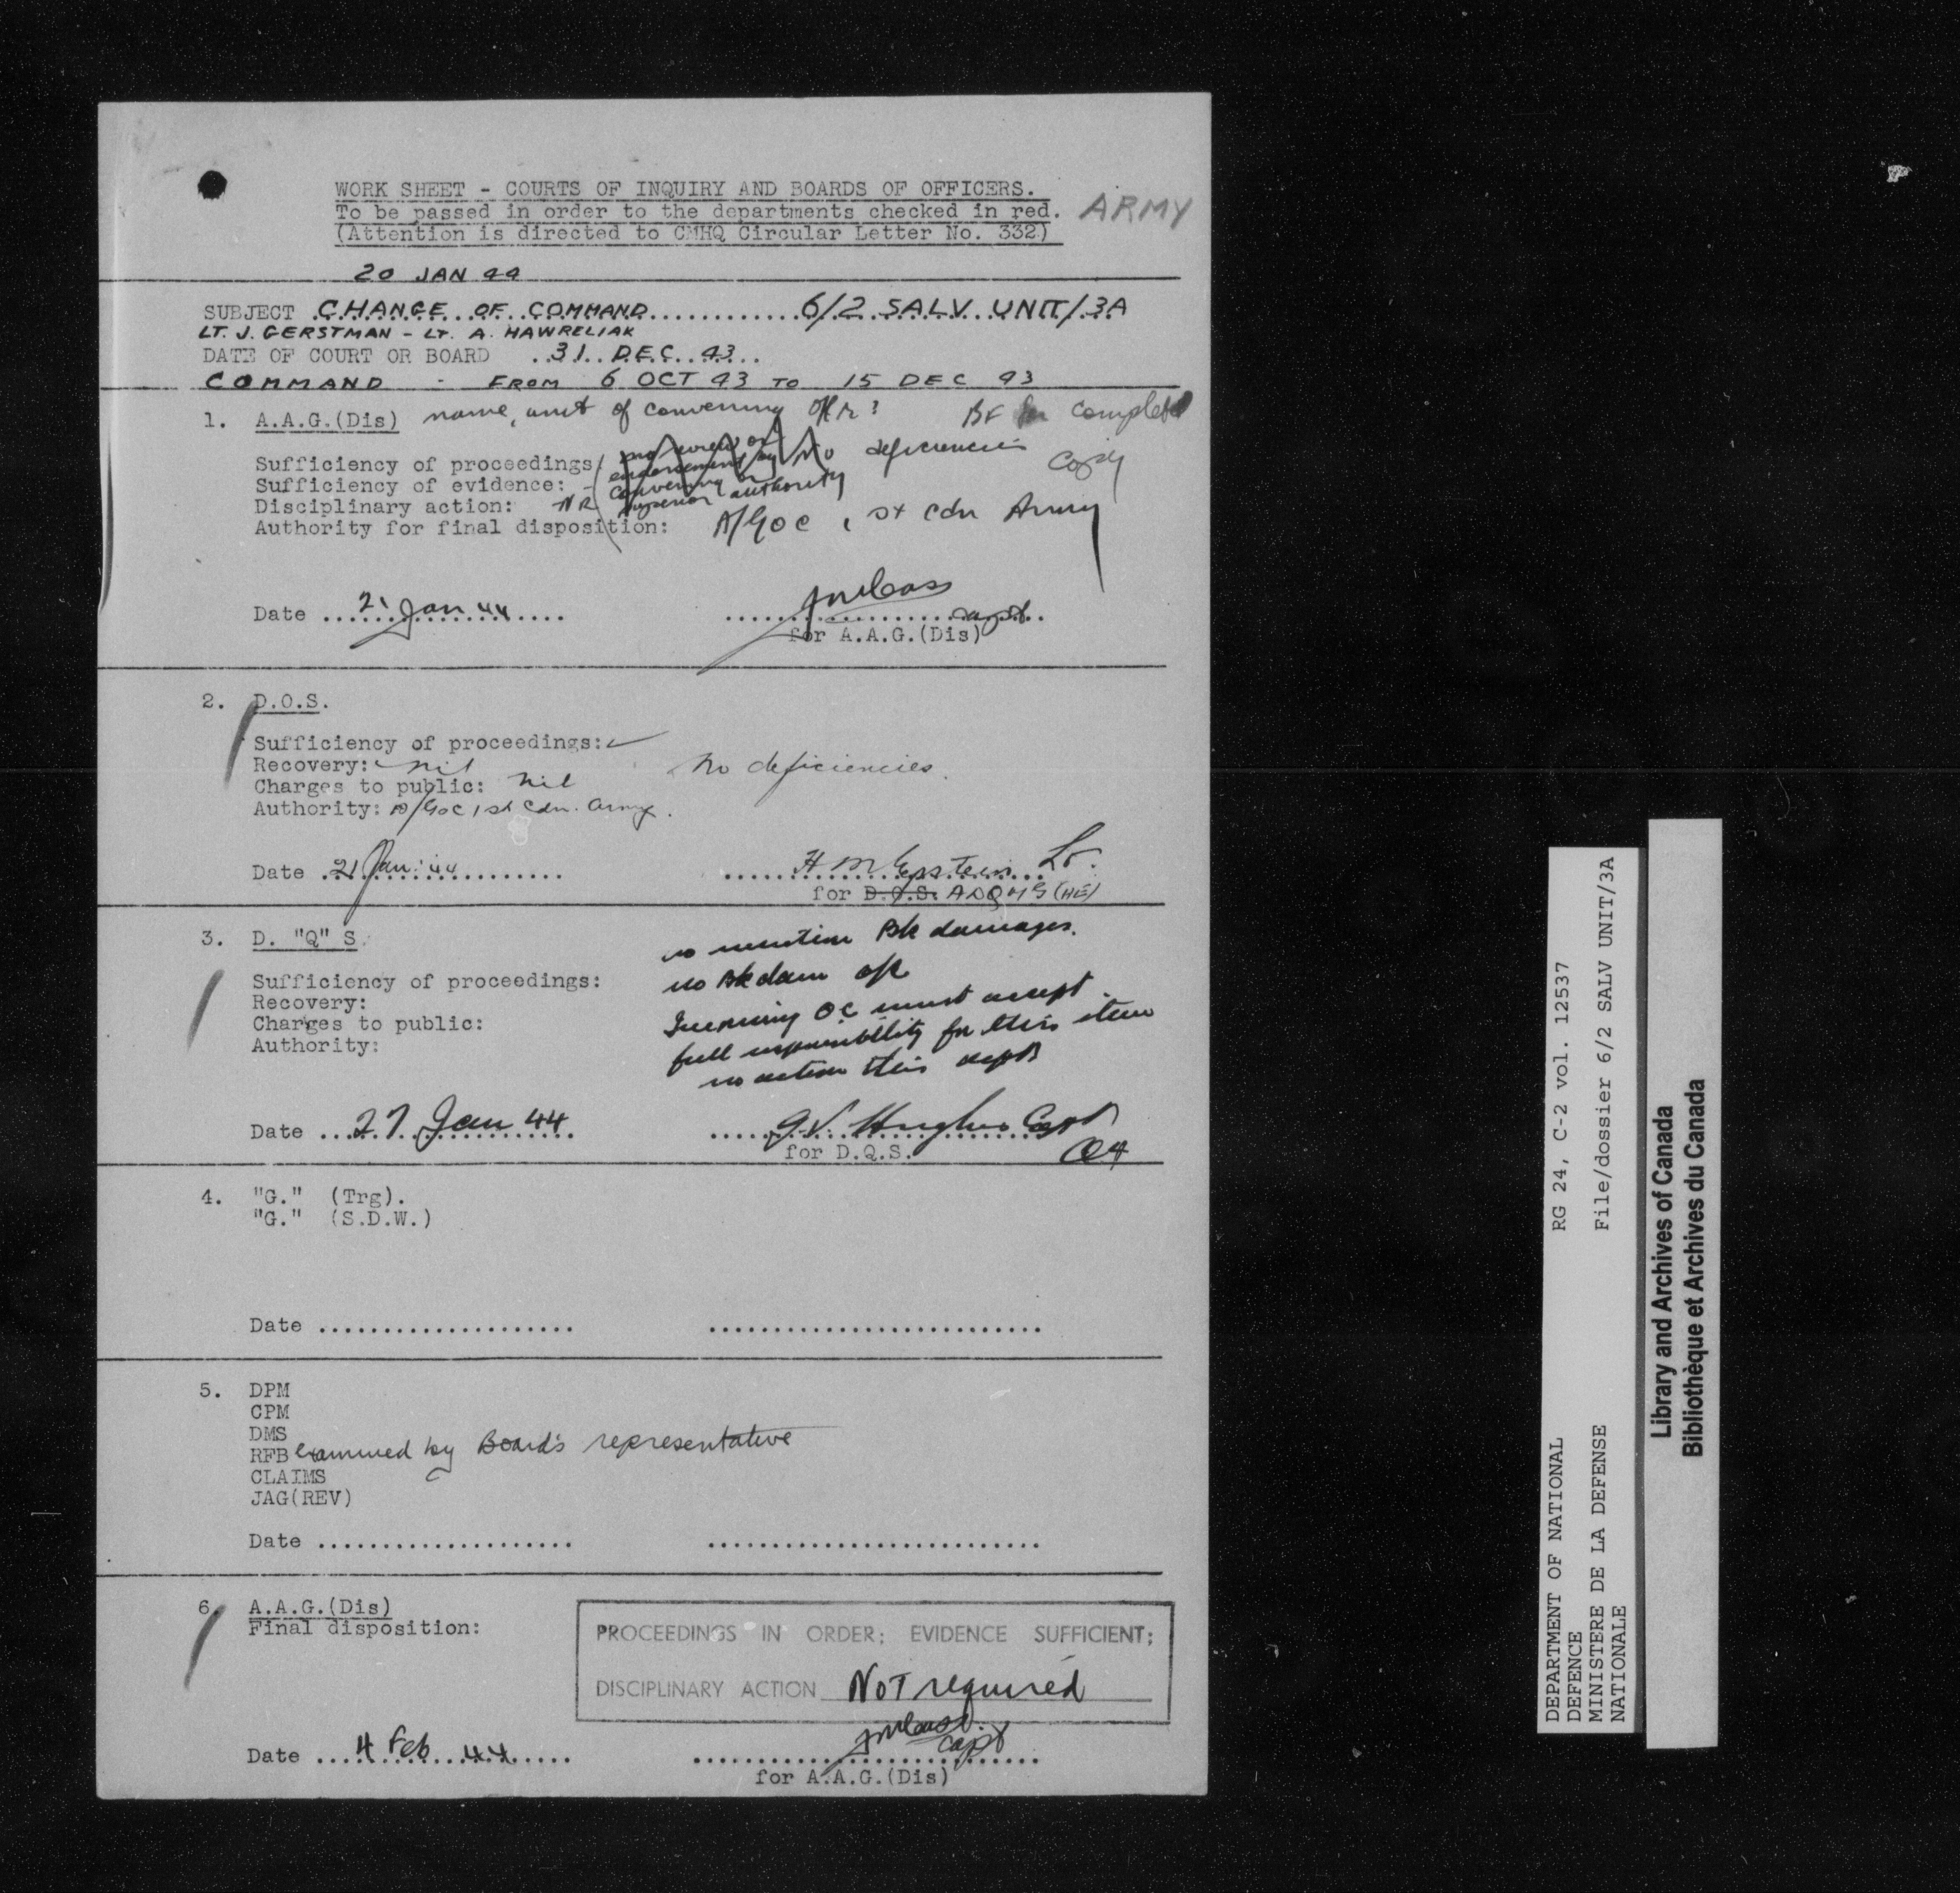 WORK SHEET - COURTS OF INQUIRY AND BOARDS OF OFFICERS.
To be passed in order to the departments checked in red. ARMY
(Attention is directed to CMHQ Circular Letter No. 332)
20 JAN 44
SUBJECT CHANGE OF COMMAND 6/2 SALV. UNIT/3A
LT. J. GERSTMAN - LT. A. HAWRELIAK
DATE OF COURT OR BOARD 31 DEC 43
COMMAND - FROM 6 OCT 43 TO 15 DEC 43
1. A.A.G.(Dis) name, unit of convening Offr? BF for complete
copy
Sufficiency of proceedings no review or No deficiencies
Sufficiency of evidence: - endorsement by
Disciplinary action: NR convening or
superior authority
Authority for final disposition: A/GOC 1st Cdn Army
Date 21 Jan 44 Capt.
for A.A.G.(Dis)
2. D.O.S.
Sufficiency of proceedings:
Recovery: nil No deficiencies.
Charges to public: nil
Authority: A/GOC 1st Cdn. Army.
Date 21 Jan. 44 H M Epstein Lt.
for D.O.S. ADQMG (AE)
3. D. "Q" S.
no mention Bk damages.
Sufficiency of proceedings: no Bk dam
Recovery: Incoming OC must accept
Charges to public: full responsibility for this item
Authority: no action this dept
Date 27 Jan 44 G.V. Hughes Capt
for D.Q.S. Q4
4. "G." (Trg).
"G." (S.D.W.)
Date
5. DPM
CPM
DMS
RFB examined by Board's representative
CLAIMS
JAG(REV)
Date
6. A.A.G.(Dis)
Final disposition:
PROCEEDINGS IN ORDER; EVIDENCE SUFFICIENT;
DISCIPLINARY ACTION Not required
Date 4 Feb 44 Capt
for A.A.G.(Dis)
DEPARTMENT OF NATIONAL RG 24, C-2 vol. 12537
DEFENCE
MINISTERE DE LA DEFENSE File/dossier 6/2 SALV UNIT/3A
NATIONALE
Library and Archives of Canada
Bibliothèque et Archives du Canada